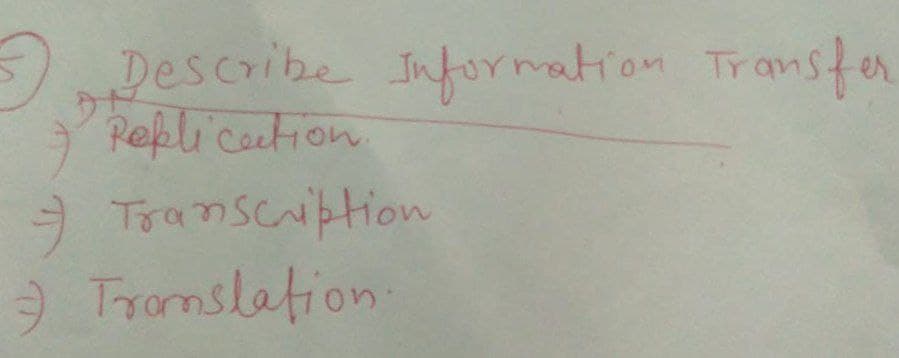 5) Describe Information Transfer
⇒ Replication.
⇒ Transcription
⇒ Translation.